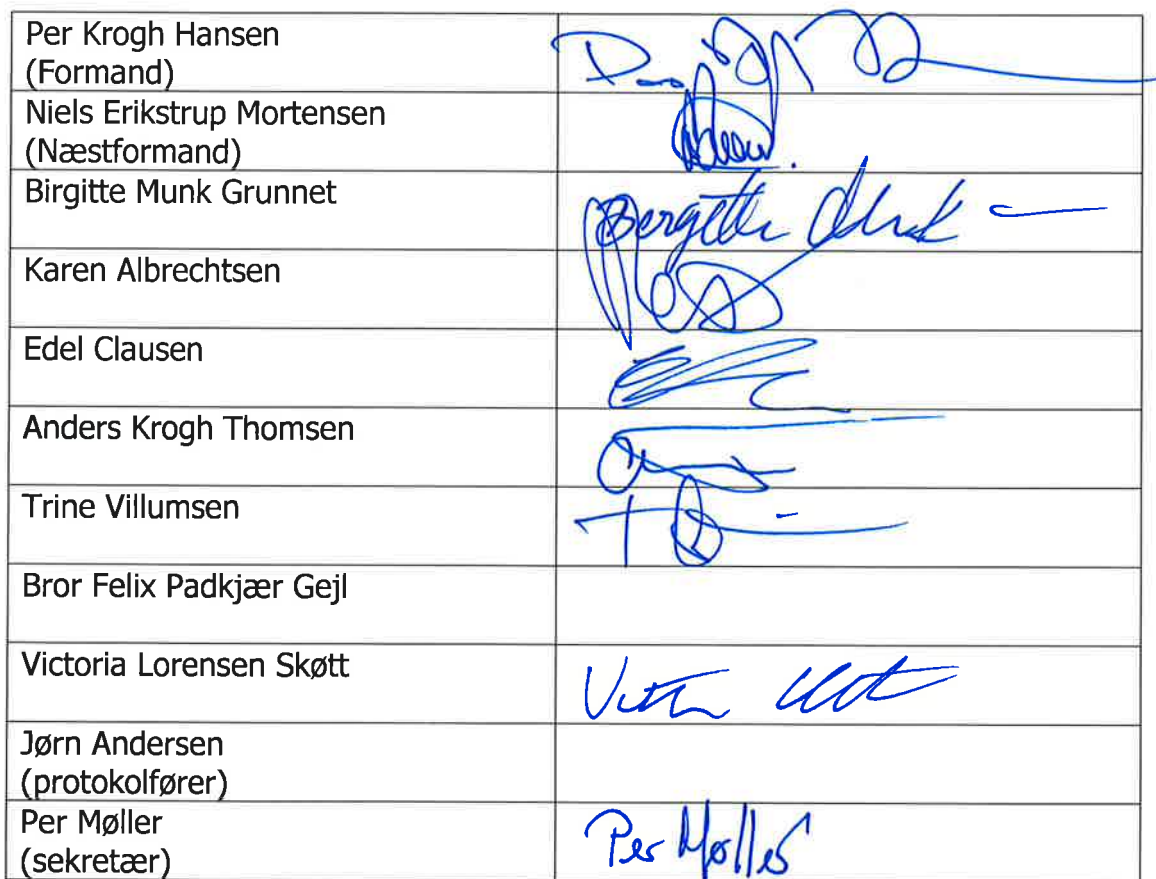 Per Krogh Hansen
(Formand)
Niels Erikstrup Mortensen
(Næstformand)
Birgitte Munk Grunnet
Birgitte Munk
Karen Albrechtsen
Edel Clausen
Anders Krogh Thomsen
Trine Villumsen
Bror Felix Padkjær Gejl
Victoria Lorensen Skøtt
Jørn Andersen
(protokolfører)
Per Møller
(sekretær)
Per Møller